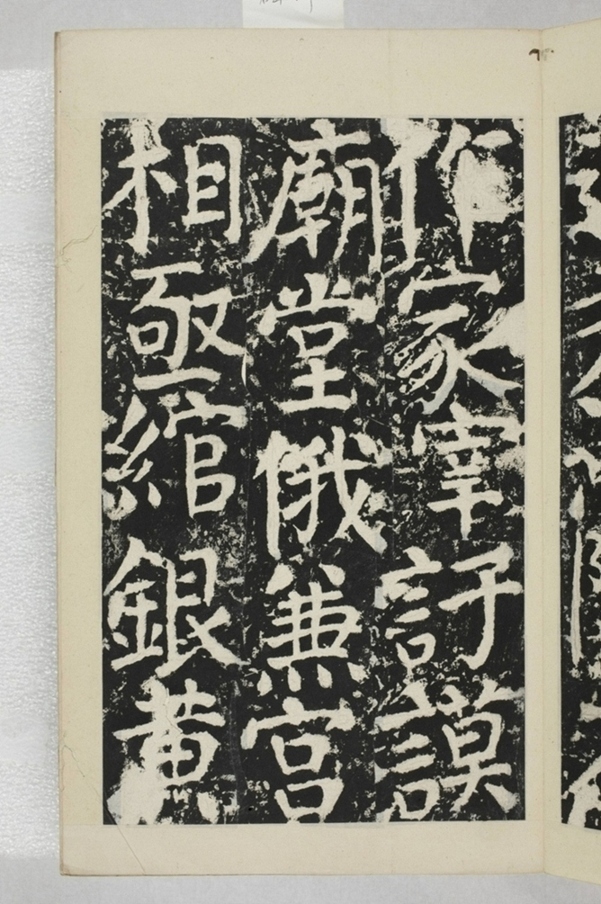 作家宰訏謨
廟堂俄兼宫
相亟綰銀黄